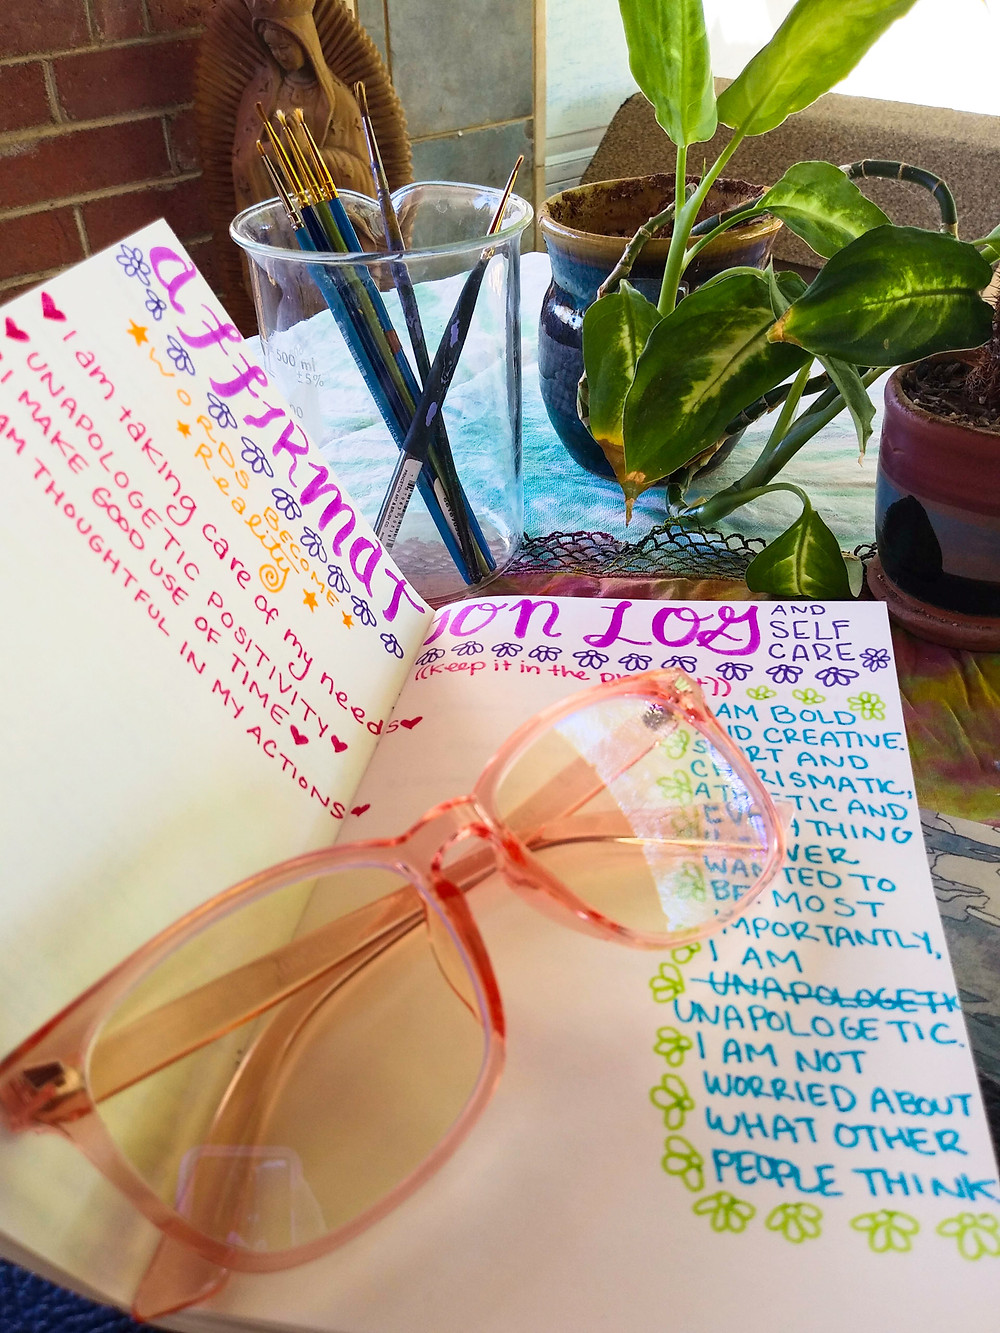 AFFIRMATION LOG
AND
SELF
CARE
WORDS BECOME
Reality
I am taking care of my needs
UNAPOLOGETIC POSITIVITY
I MAKE GOOD USE OF TIME
AM THOUGHTFUL IN MY ACTIONS
((Keep it in the present))
AM BOLD
AND CREATIVE.
SMART AND
CHARISMATIC,
ATHLETIC AND
EVERYTHING
EVER
WANTED TO
BE. MOST
IMPORTANTLY,
I AM
UNAPOLOGETIC
UNAPOLOGETIC.
I AM NOT
WORRIED ABOUT
WHAT OTHER
PEOPLE THINK
500 ml
±5%